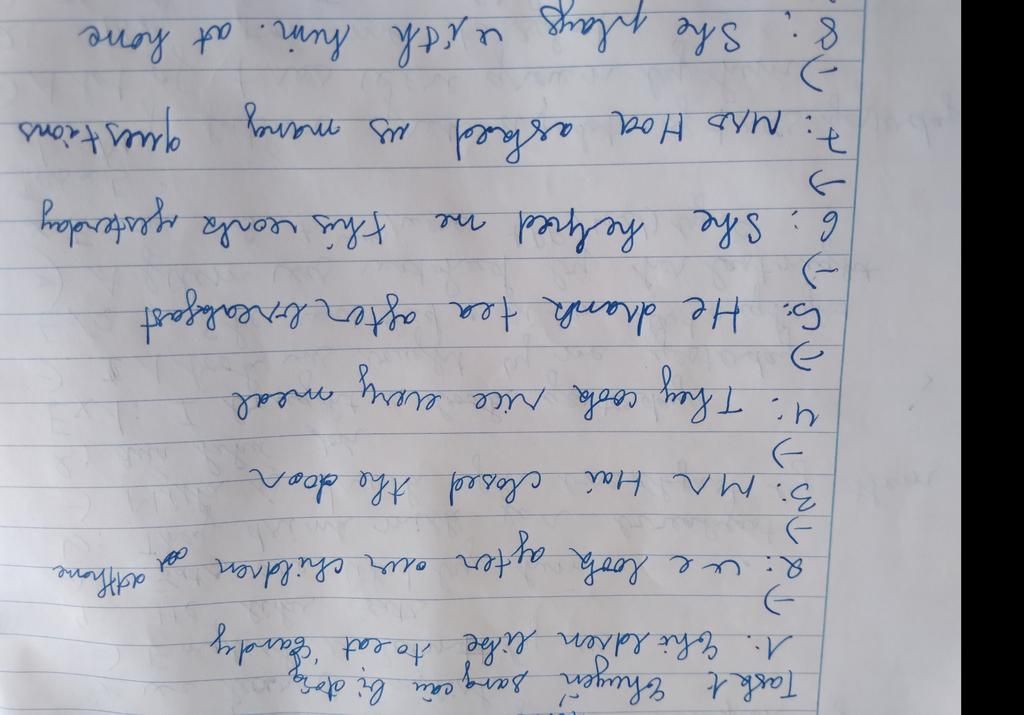 Task 1 Chuyển sang câu bị động
1: Children like to eat candy
->
2: We look after our children at home
->
3: Mr Hai closed the door
->
4: They cook rice every meal
->
5: He drank tea after breakfast
->
6: She helped me this work yesterday
->
7: Mrs Hoa asked us many questions
->
8: She plays with him at home